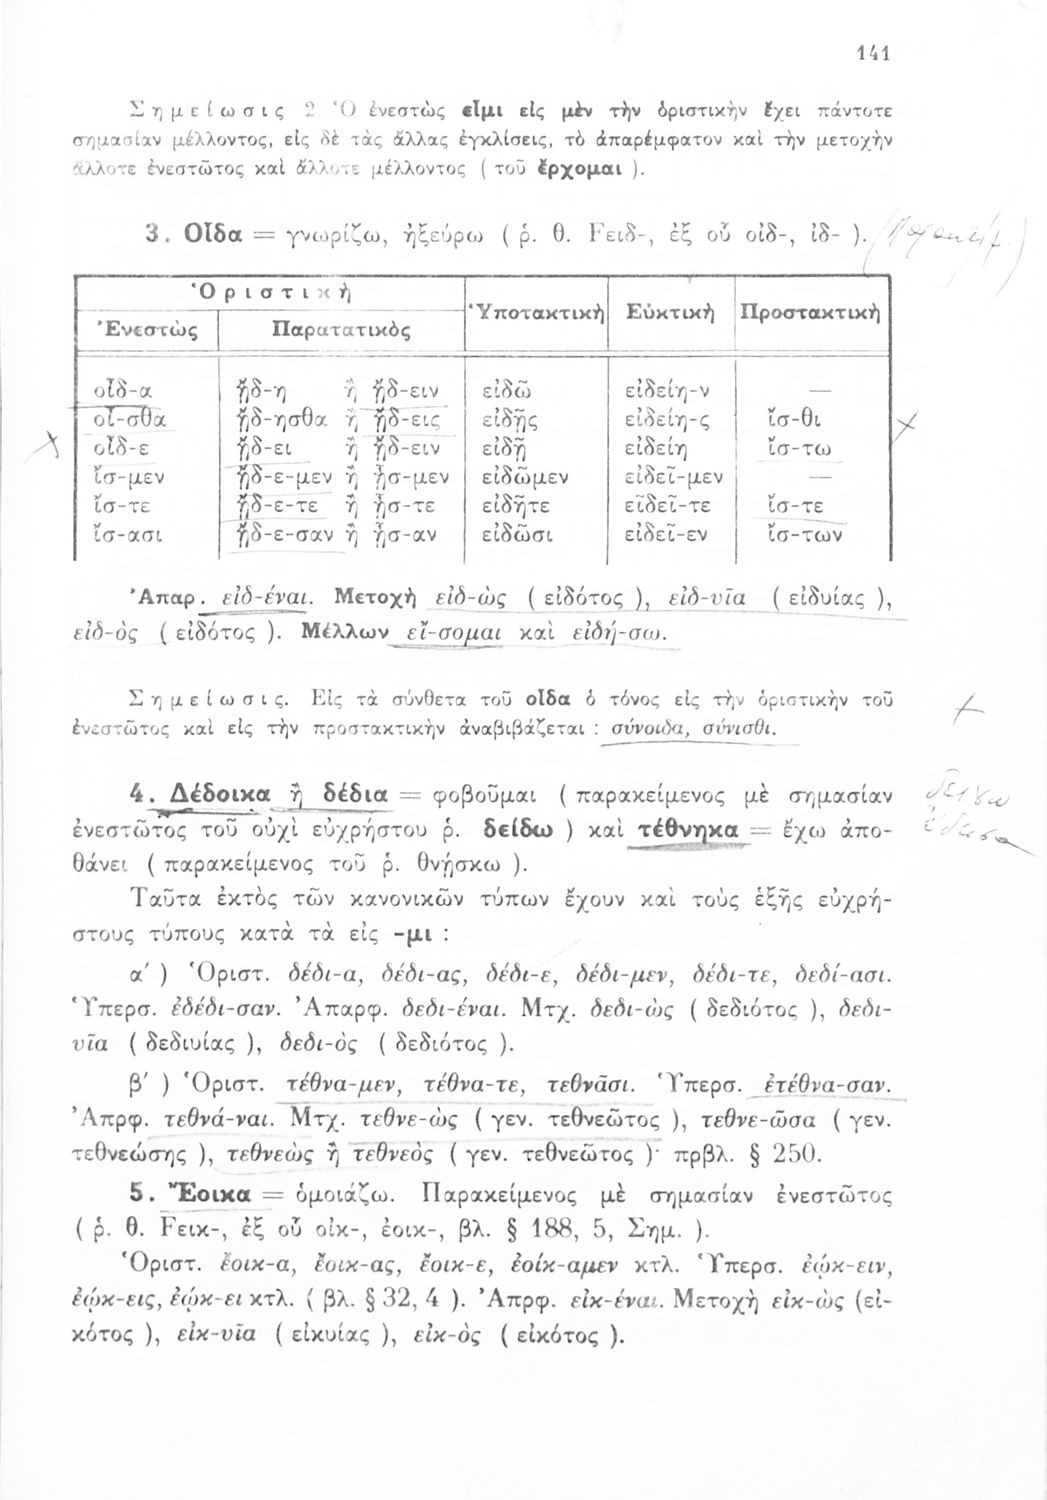 141
Σημείωσις 2. Ὁ ἐνεστὼς εἶμι εἰς μὲν τὴν ὁριστικὴν ἔχει πάντοτε
σημασίαν μέλλοντος, εἰς δὲ τὰς ἄλλας ἐγκλίσεις, τὸ ἀπαρέμφατον καὶ τὴν μετοχὴν
ἄλλοτε ἐνεστῶτος καὶ ἄλλοτε μέλλοντος ( τοῦ ἔρχομαι ).
3. Οἶδα = γνωρίζω, ἠξεύρω ( ῥ. θ. Fειδ-, ἐξ οὗ οἰδ-, ἰδ- ).
Ὁριστικὴ Ὑποτακτικὴ Εὐκτικὴ Προστακτικὴ
Ἐνεστὼς Παρατατικὸς
οἶδ-α ᾔδ-η ἢ ᾔδ-ειν εἰδῶ εἰδείη-ν —
οἶ-σθα ᾔδ-ησθα ἢ ᾔδ-εις εἰδῇς εἰδείη-ς ἴσ-θι
οἶδ-ε ᾔδ-ει ἢ ᾔδ-ειν εἰδῇ εἰδείη ἴσ-τω
ἴσ-μεν ᾔδ-ε-μεν ἢ ᾖσ-μεν εἰδῶμεν εἰδεῖ-μεν —
ἴσ-τε ᾔδ-ε-τε ἢ ᾖσ-τε εἰδῆτε εἰδεῖ-τε ἴσ-τε
ἴσ-ασι ᾔδ-ε-σαν ἢ ᾖσ-αν εἰδῶσι εἰδεῖ-εν ἴσ-των
Ἀπαρ. εἰδ-έναι. Μετοχὴ εἰδ-ὼς ( εἰδότος ), εἰδ-υῖα ( εἰδυίας ),
εἰδ-ὸς ( εἰδότος ). Μέλλων εἴ-σομαι καὶ εἰδή-σω.
Σημείωσις. Εἰς τὰ σύνθετα τοῦ οἶδα ὁ τόνος εἰς τὴν ὁριστικὴν τοῦ
ἐνεστῶτος καὶ εἰς τὴν προστακτικὴν ἀναβιβάζεται : σύνοιδα, σύνισθι.
4. Δέδοικα ἢ δέδια = φοβοῦμαι ( παρακείμενος μὲ σημασίαν
ἐνεστῶτος τοῦ οὐχὶ εὐχρήστου ῥ. δείδω ) καὶ τέθνηκα = ἔχω ἀπο-
θάνει ( παρακείμενος τοῦ ῥ. θνῄσκω ).
Ταῦτα ἐκτὸς τῶν κανονικῶν τύπων ἔχουν καὶ τοὺς ἑξῆς εὐχρή-
στους τύπους κατὰ τὰ εἰς -μι :
α' ) Ὁριστ. δέδι-α, δέδι-ας, δέδι-ε, δέδι-μεν, δέδι-τε, δεδί-ασι.
Ὑπερσ. ἐδέδι-σαν. Ἀπαρφ. δεδι-έναι. Μτχ. δεδι-ὼς ( δεδιότος ), δεδι-
υῖα ( δεδιυίας ), δεδι-ὸς ( δεδιότος ).
β' ) Ὁριστ. τέθνα-μεν, τέθνα-τε, τεθνᾶσι. Ὑπερσ. ἐτέθνα-σαν.
Ἀπρφ. τεθνά-ναι. Μτχ. τεθνε-ὼς ( γεν. τεθνεῶτος ), τεθνε-ῶσα ( γεν.
τεθνεώσης ), τεθνεὼς ἢ τεθνεὸς ( γεν. τεθνεῶτος )· πρβλ. § 250.
5. Ἔοικα = ὁμοιάζω. Παρακείμενος μὲ σημασίαν ἐνεστῶτος
( ῥ. θ. Fεικ-, ἐξ οὗ οἰκ-, ἐοικ-, βλ. § 188, 5, Σημ. ).
Ὁριστ. ἔοικ-α, ἔοικ-ας, ἔοικ-ε, ἐοίκ-αμεν κτλ. Ὑπερσ. ἐῴκ-ειν,
ἐῴκ-εις, ἐῴκ-ει κτλ. ( βλ. § 32, 4 ). Ἀπρφ. εἰκ-έναι. Μετοχὴ εἰκ-ὼς (εἰ-
κότος ), εἰκ-υῖα ( εἰκυίας ), εἰκ-ὸς ( εἰκότος ).